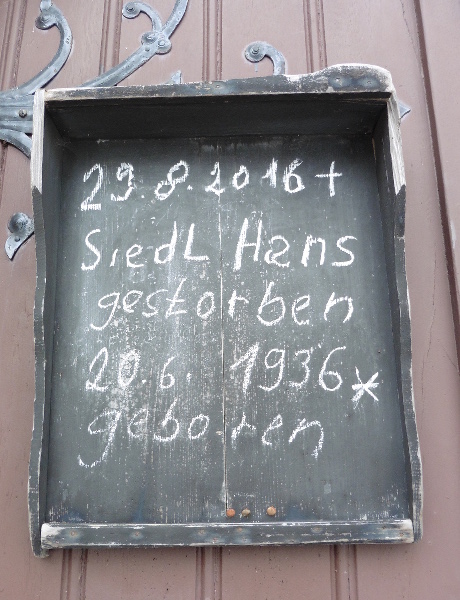 29.8.2016+
Siedl Hans
gestorben
20.6. 1936*
geboren